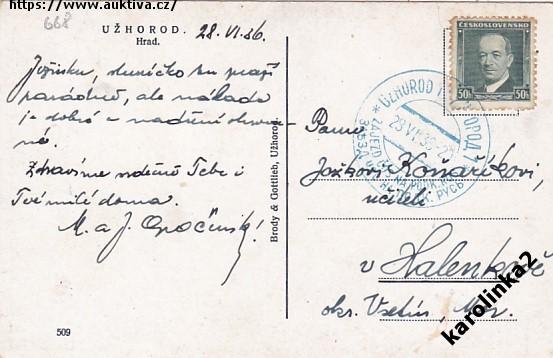 https://www.auktiva.cz/
668
UŽHOROD.
Hrad.
28. VI. 36.
Jožinku, sluníčko zu praží
parádně, ale nálada
je dobrá a nadšení ohrom-
né.
Zdravíme srdečně Tebe i
Tvé milé doma.
M. a J. Opočenský!
Brody & Gottlieb, Užhorod.
509
ČESKOSLOVENSKO
50h 50h
UŽHOROD 1
28.VI.36
Panu
Jožkovi Koňaříkovi,
učiteli
v Halenkově
okr. Vsetín, Mor.
karolinka2